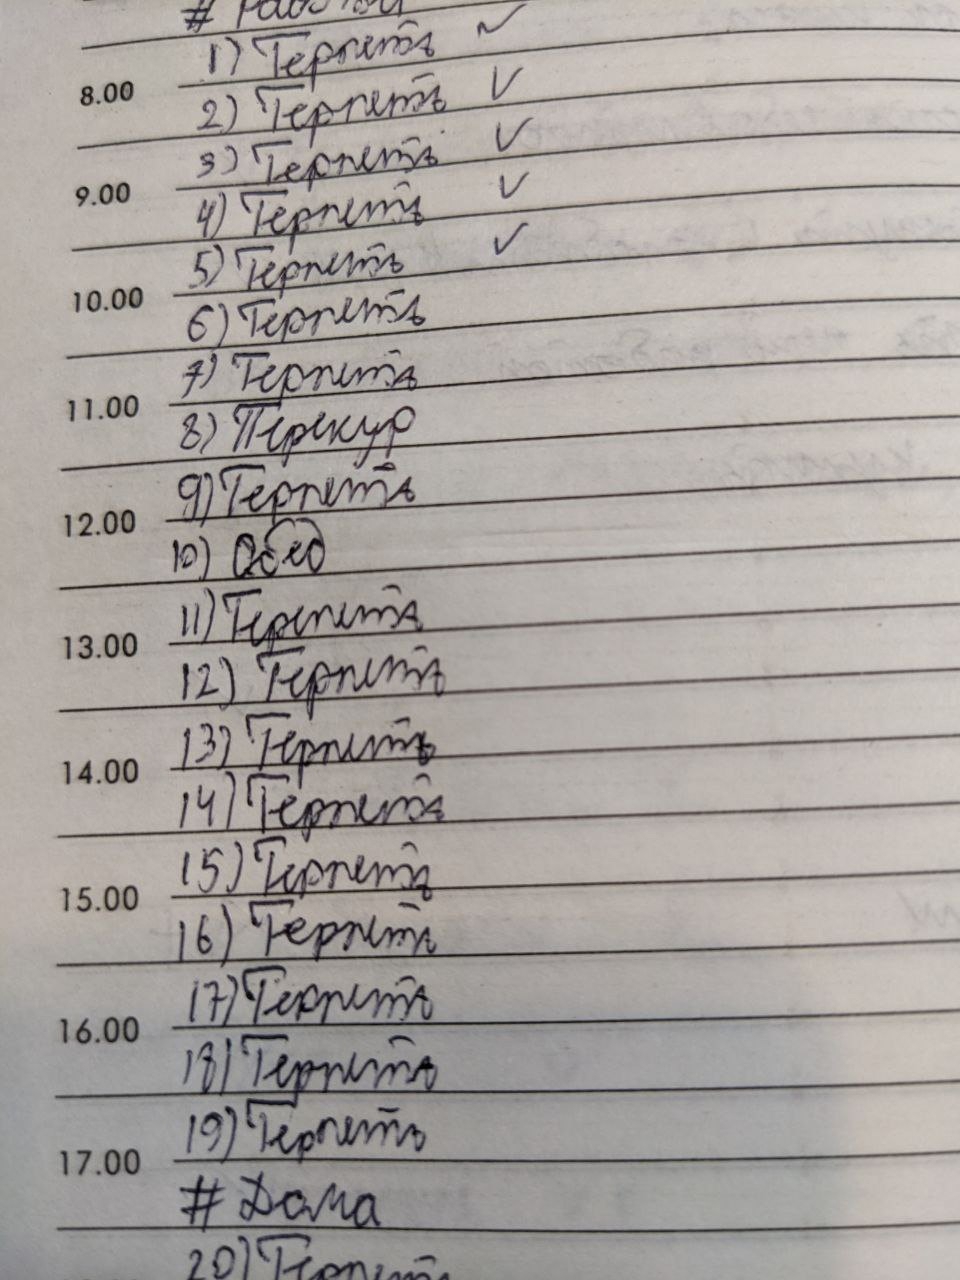 8.00
1) Терпеть ✓
2) Терпеть ✓
9.00
3) Терпеть ✓
4) Терпеть ✓
10.00
5) Терпеть ✓
6) Терпеть
11.00
7) Терпеть
8) Перекур
12.00
9) Терпеть
10) Обед
13.00
11) Терпеть
12) Терпеть
14.00
13) Терпеть
14) Терпеть
15.00
15) Терпеть
16) Терпеть
16.00
17) Терпеть
18) Терпеть
17.00
19) Терпеть
# Дома
20) Терпеть